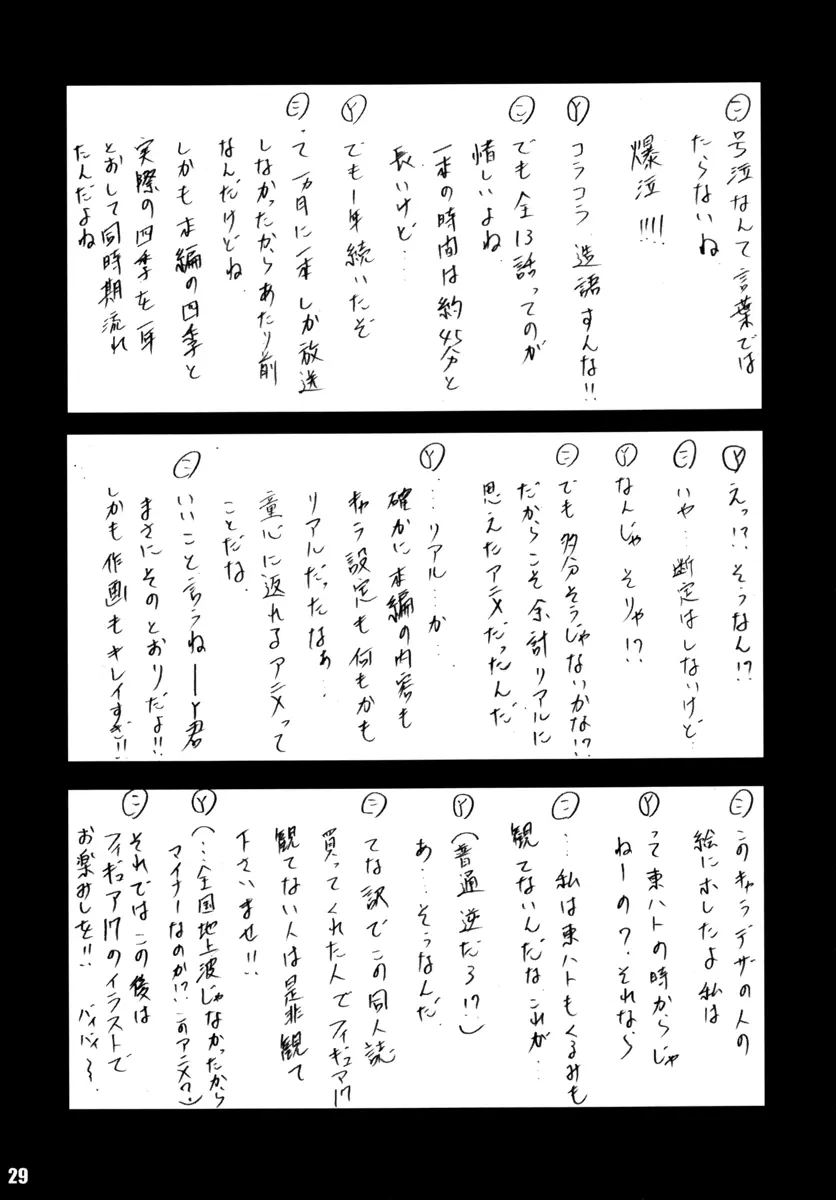 ㋥ 号泣なんて言葉では
たらないね
爆泣!!!!
Ⓨ コラコラ 造語すんな!!
㋥ でも全13話ってのが
惜しいよね
一本の時間は約45分と
長いけど…
Ⓨ でも1年続いたぞ
㋥ って一ヵ月に一本しか放送
しなかったからあたり前
なんだけどね
しかも本編の四季と
実際の四季を一年
とおして同時期流れ
たんだよね
Ⓨ えっ!?そうなん!?
㋥ いや…断定はしないけど…
Ⓨ なんじゃそりゃ!?
㋥ でも多分そうじゃないかな!?
だからこそ余計リアルに
思えたアニメだったんだ
Ⓨ …リアル…か
確かに本編の内容も
キャラ設定も何もかも
リアルだったなぁ…
童心に返れるアニメって
ことだな
㋥ いいこと言うねーY君
まさにそのとおりだよ!!
しかも作画もキレイすぎ!!
㋥ このキャラデザの人の
絵にホレたよ私は
Ⓨ って東ハトの時からじゃ
ねーの?それなら
㋥ …私は東ハトもくるみも
観てないんだな これが…
Ⓨ (普通逆だろ!?)
あ…そうなんだ
㋥ てな訳でこの同人誌
買ってくれた人でフィギュア17
観てない人は是非観て
下さいませ!!
Ⓨ (…全国地上波じゃなかったから
マイナーなのか!?このアニメ?)
㋥ それではこの後は
フィギュア17のイラストで
お楽みしを!! バイバイ〜
29